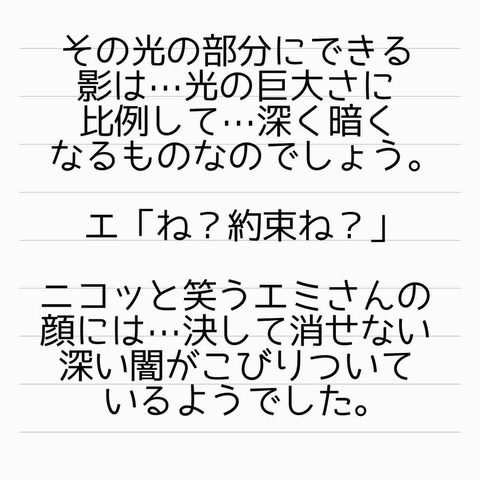 その光の部分にできる
影は…光の巨大さに
比例して…深く暗く
なるものなのでしょう。
エ「ね？約束ね？」
ニコッと笑うエミさんの
顔には…決して消せない
深い闇がこびりついて
いるようでした。